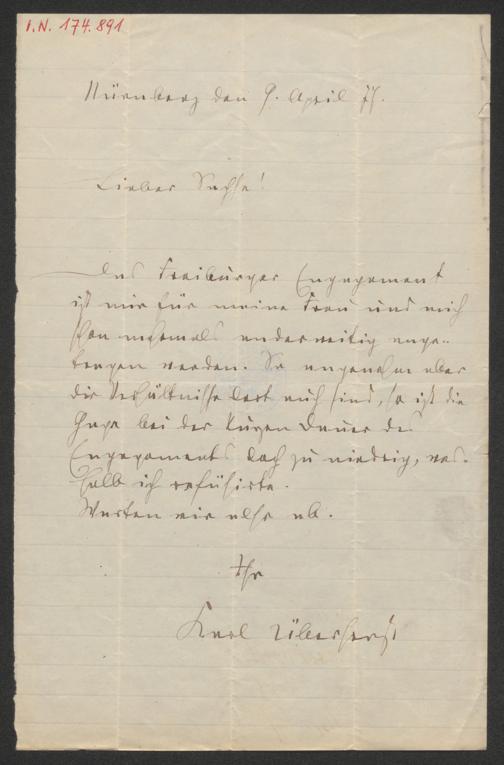 I.N. 174.891
Nürnberg den 9. April 77.
Lieber Sachse!
Das Freiburger Engagement
ist mir für meine Frau und mich
schon mehrmals anderweitig ange-
tragen worden. So angenehm aber
die Verhältnisse dort auch sind, so ist die
Gage bei der kurzen Dauer des
Engagements doch zu niedrig, wes-
halb ich refüsirte.
Warten wir also ab.
Ihr
Karl Überhorst